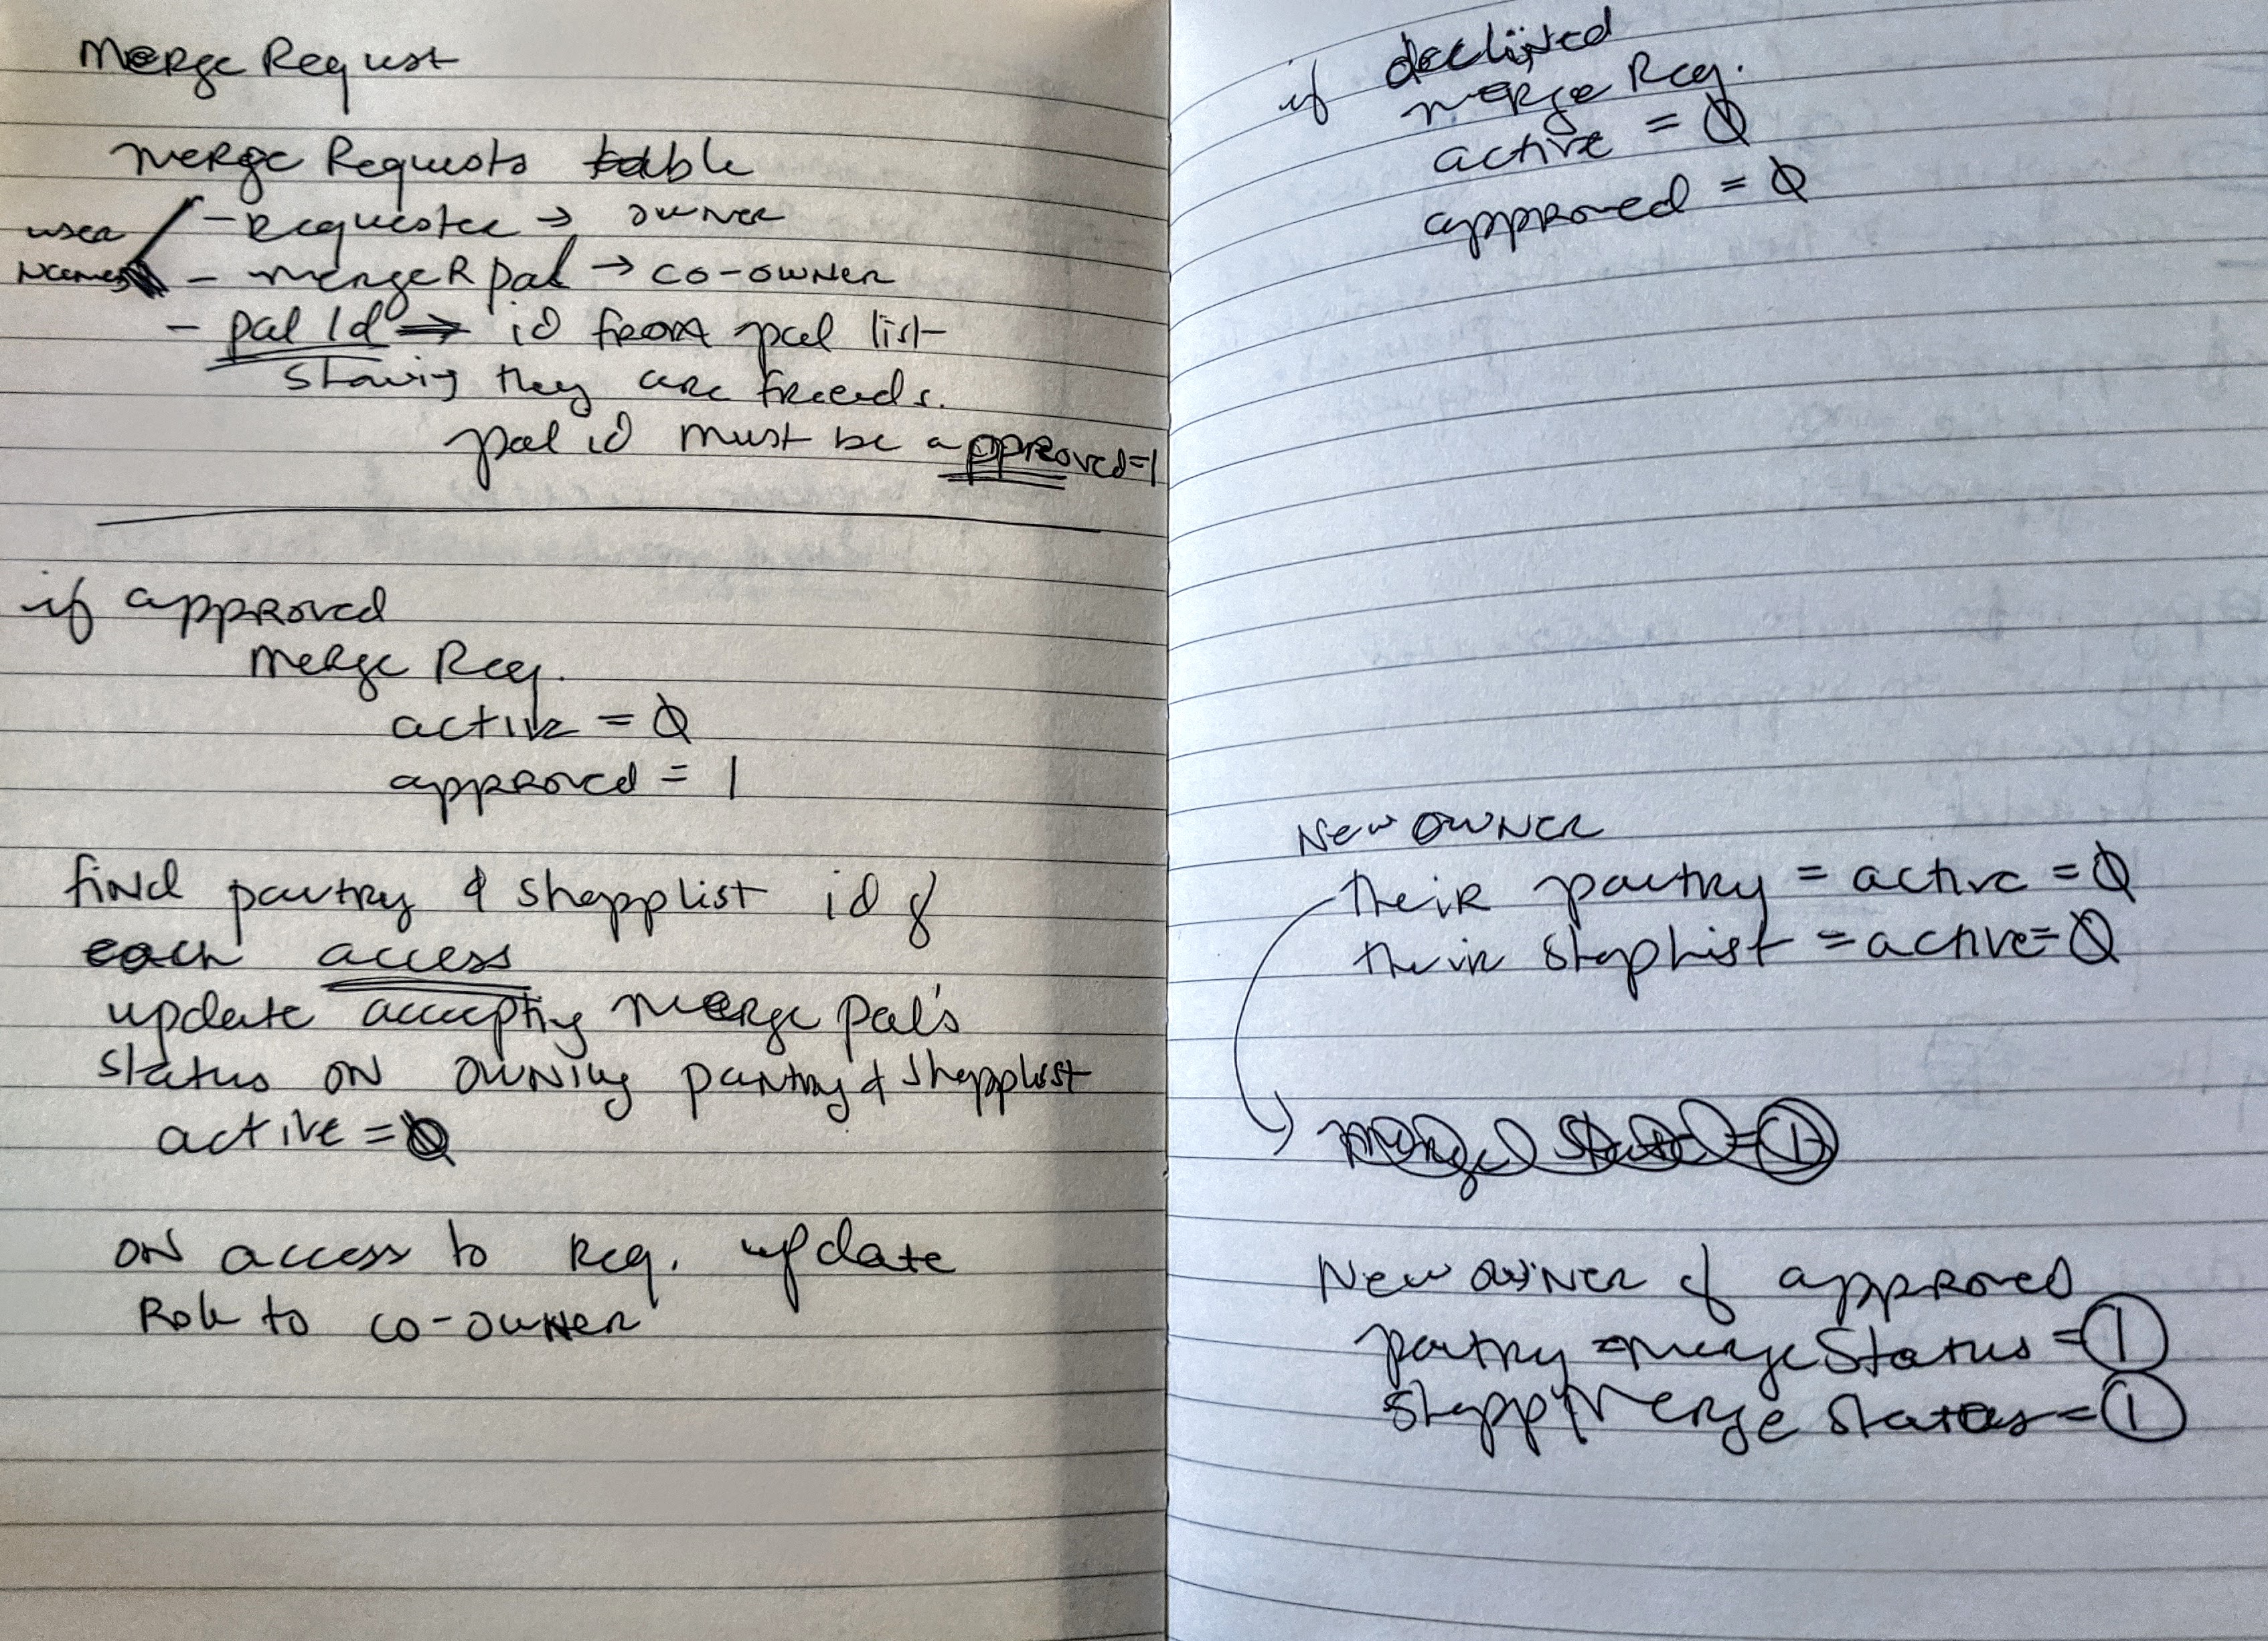 Merge Request
Merge Requests table
user names
- Requestee → owner
- mergeR pal → co-owner
- pal Id ⇒ id from pal list
showing they are friends.
pal id must be approved=1
if approved
Merge Req.
active = Ø
approved = 1
find pantry & shopplist id of
each access
update accepting merge pal's
status on owning pantry & shopplist
active = Ø
on access to req. update
Role to co-owner
if declined
merge Req.
active = Ø
approved = Ø
New owner
their pantry = active = Ø
their shoplist = active = Ø
New owner if approved
pantry = mergeStatus = 1
shopp Merge Status = 1